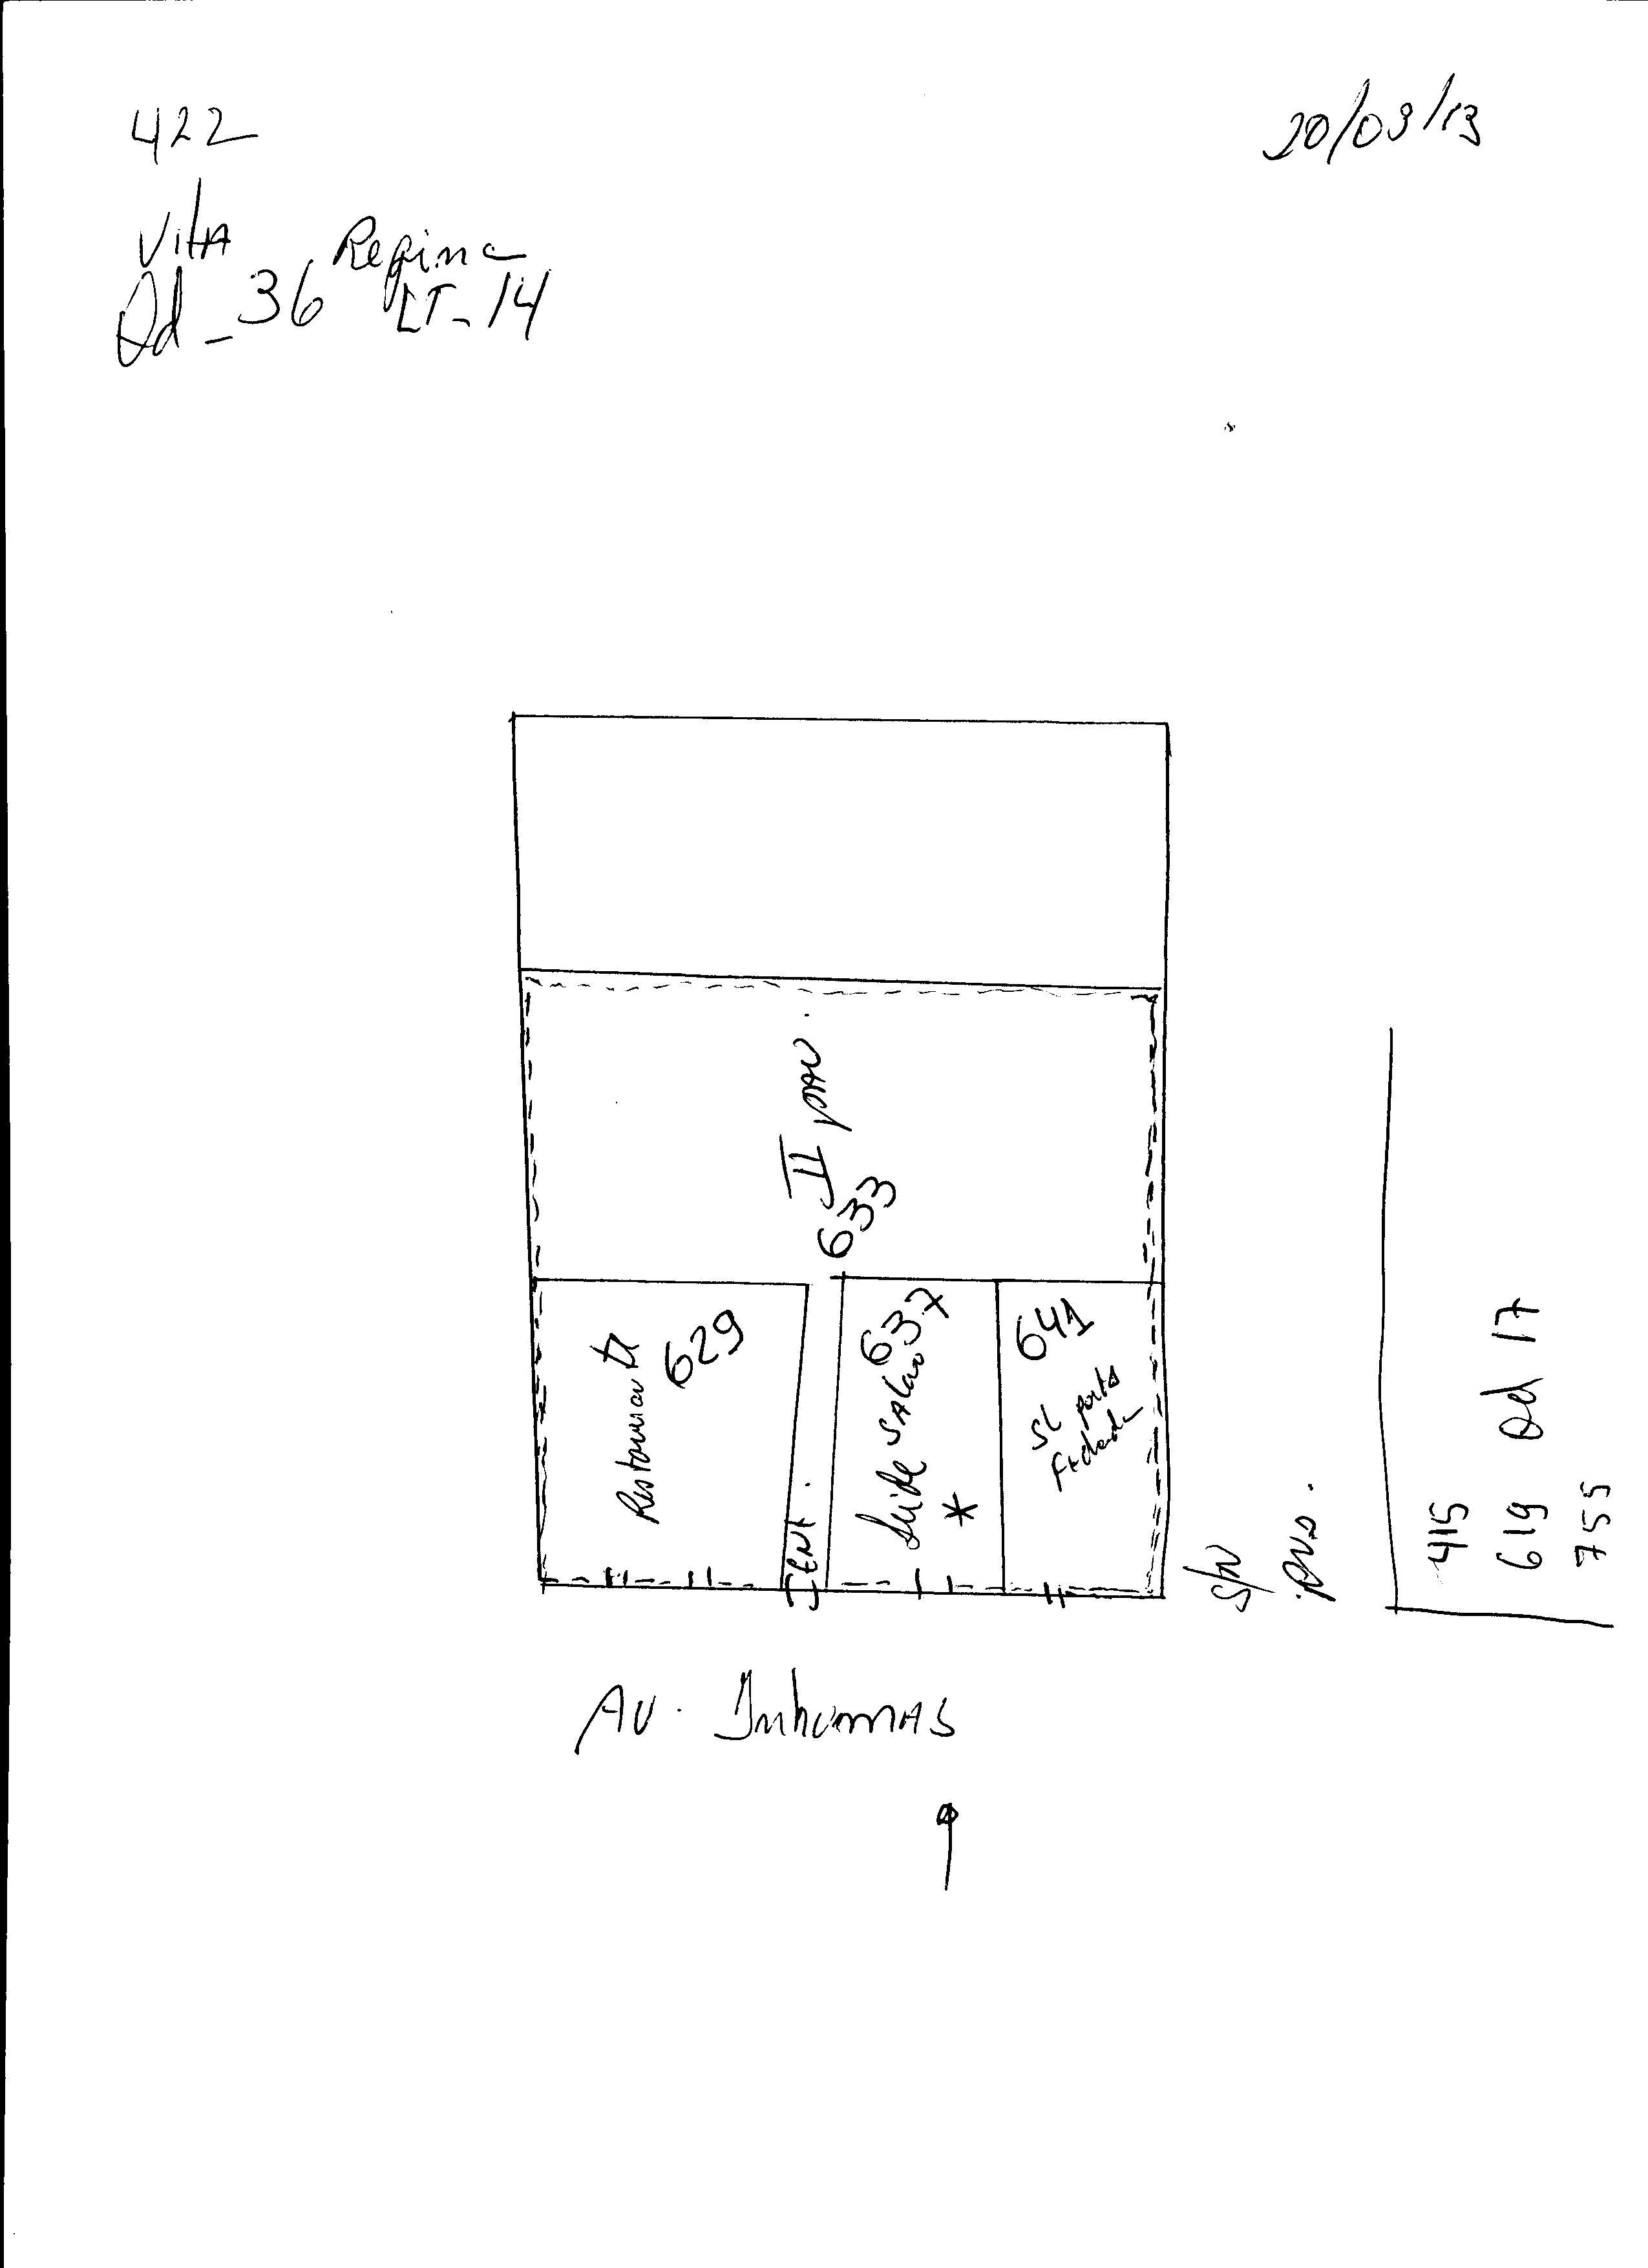 422
20/03/13
Vila Regina
Qd - 36 LT - 14
II pav.
633
Restaurant
629
ENt.
637
Salão
*
641
SL porta
fechada
S/N
415
619 Qd 17
755
AV. Inhumas